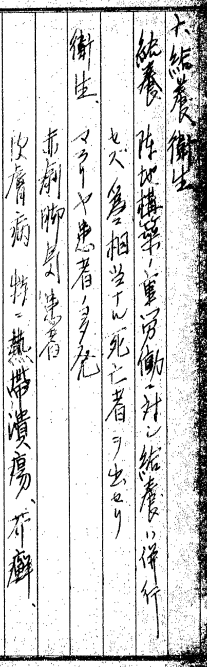 六、給養衛生
給養 陣地構築ノ重労働ニ対シ給養ハ併行
セズ為ニ相当ナル死亡者ヲ出セリ
衛生、マラリヤ患者ノ多発
赤痢脚気患者
皮膚病 特ニ熱帯潰瘍、疥癬、